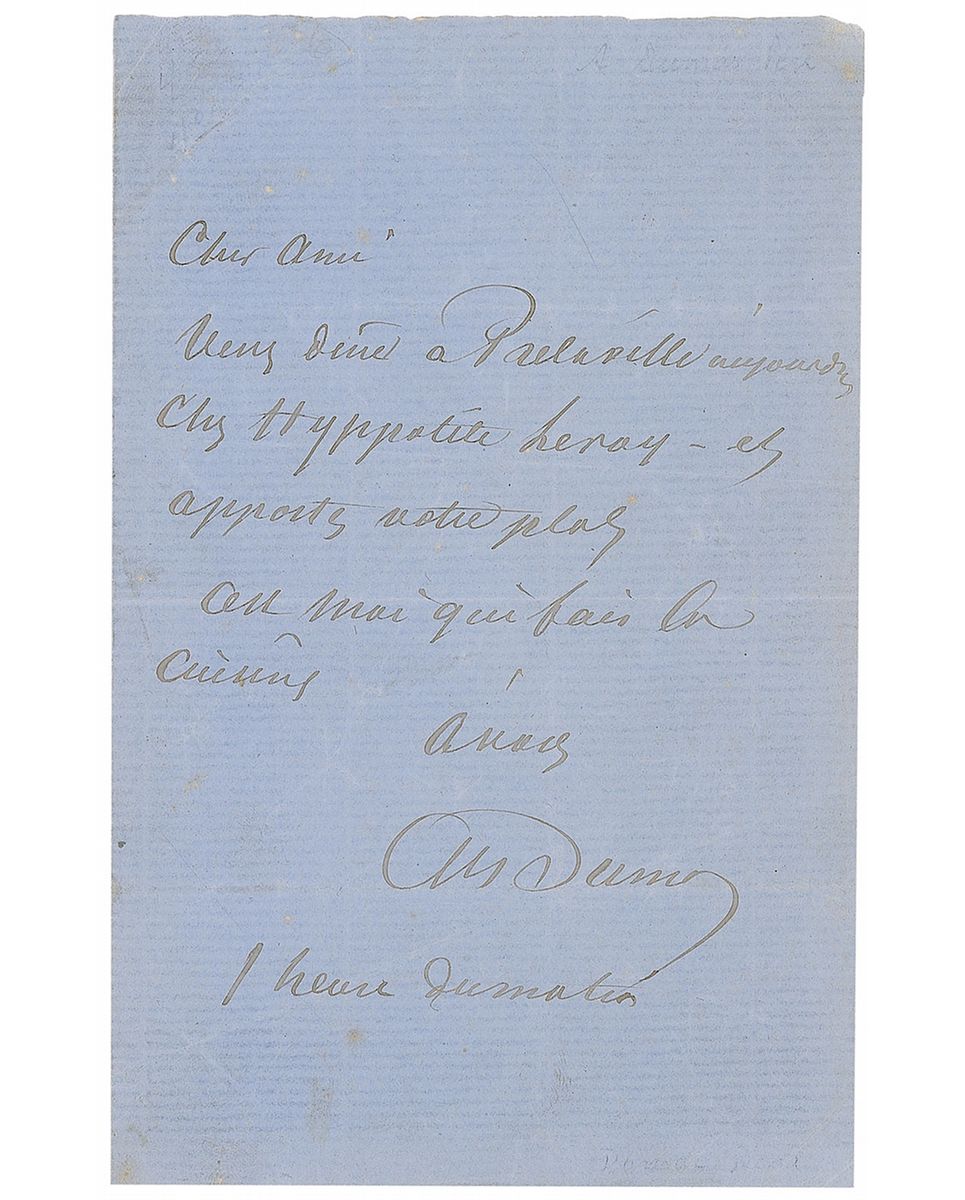 Cher Ami
Venez diner à aujourd'hui
chez Hyppolite Leroy – et
apportez votre plat
c'est moi qui fais la
cuisine
à vous
Alex Dumas
1 heure du matin